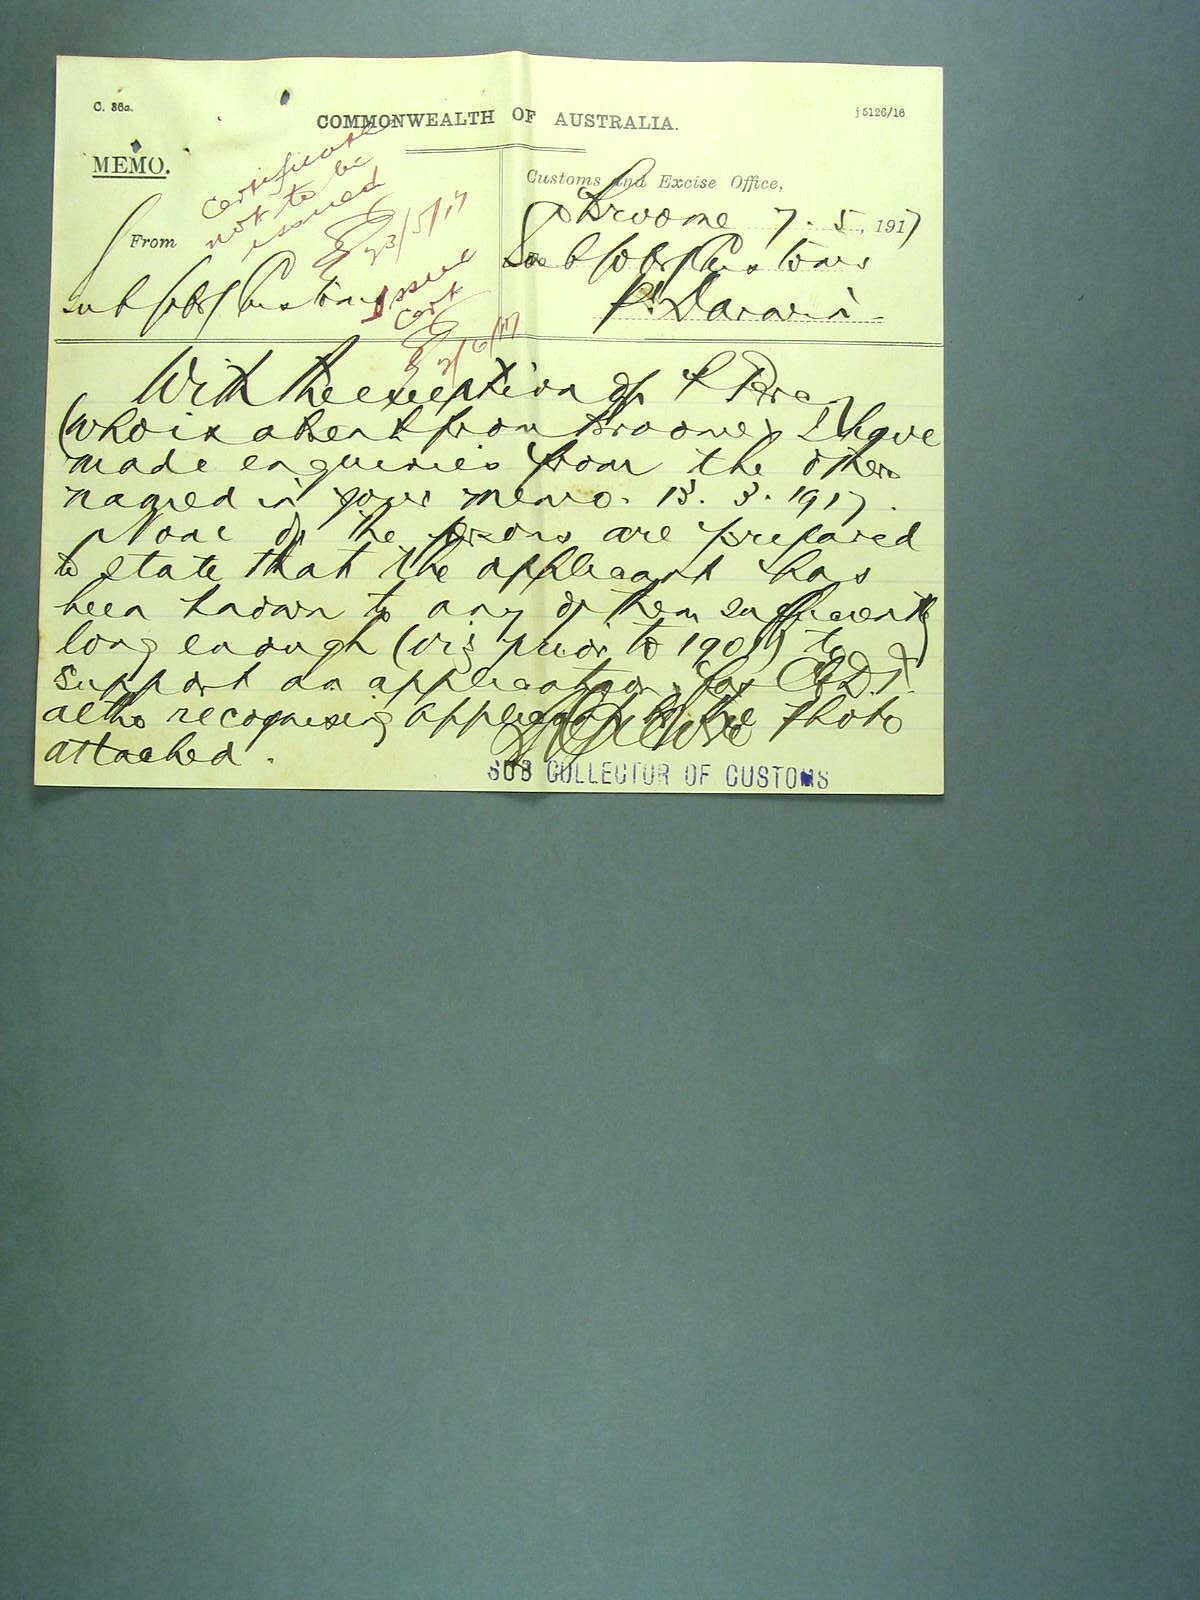 C. 36a.
COMMONWEALTH OF AUSTRALIA.
j 5126/16
MEMO.
Certificate
not to be
issued
23/5/17
Customs and Excise Office,
Broome 7. 5. 1917
From
Sub Collr Customs
Sub Collr Customs
Pt Darwin
Issue
Cert
2/6/17
With the exception of P
(who is absent from Broome) I have
made enquiries from the others
named in your memo. 13. 3. 1917.
None of the persons are prepared
to state that the applicant has
been known to any of them sufficiently
long enough (viz prior to 190 ) to
support an application for C.E.D.T.
altho recognising applicant the Photo
attached.
SUB COLLECTOR OF CUSTOMS